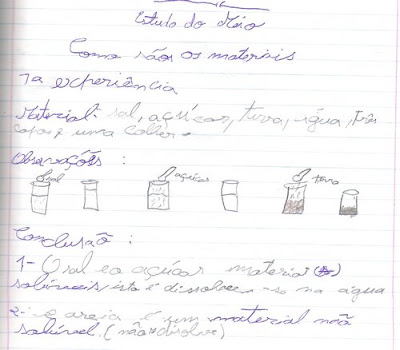 Estudo do Meio
Como são os materiais
1a experiência
Material: sal, açúcar, terra, água, três
copos e uma colher.
Observações:
sal açúcar terra
Conclusão:
1- O sal e o açúcar materia
solúveis, isto é dissolvem-se na água
2- a areia é um material não
solúvel. (não dissolve)